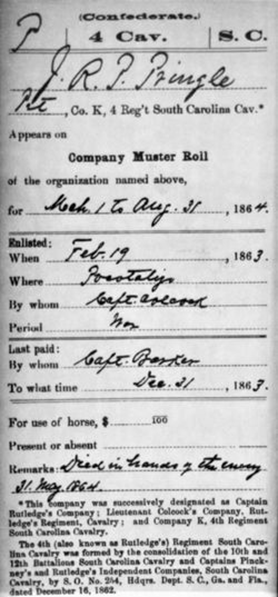 (Confederate.)
P 4 Cav. S. C.
J. R. P. Pringle
Pvt, Co. K, 4 Reg't South Carolina Cav.*
Appears on
Company Muster Roll
of the organization named above,
for Mch. 1 to Aug. 31, 1864.
Enlisted:
When Feb. 19, 1863.
Where Pocotaligo
By whom Capt. Colcock
Period War
Last paid:
By whom Capt. Barker
To what time Dec. 31, 1863.
For use of horse, $ 100
Present or absent
Remarks: Died in hands of the enemy
31. May 1864.
*This company was successively designated as Captain
Rutledge's Company; Lieutenant Colcock's Company, Rut-
ledge's Regiment, Cavalry; and Company K, 4th Regiment
South Carolina Cavalry.
The 4th (also known as Rutledge's) Regiment South Caro-
lina Cavalry was formed by the consolidation of the 10th and
12th Battalions South Carolina Cavalry and Captains Pinck-
ney's and Rutledge's Independent Companies, South Carolina
Cavalry, by S. O. No. 254, Hdqrs. Dept. S. C., Ga. and Fla.,
dated December 16, 1862.